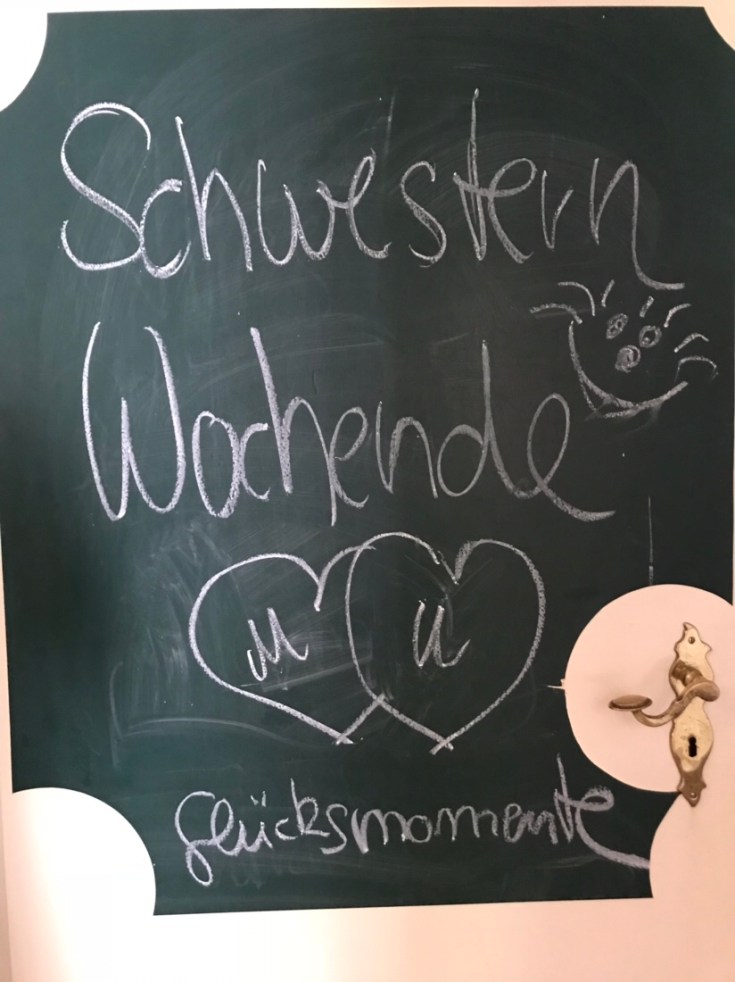 Schwestern
Wochende
M U
Glücksmomente